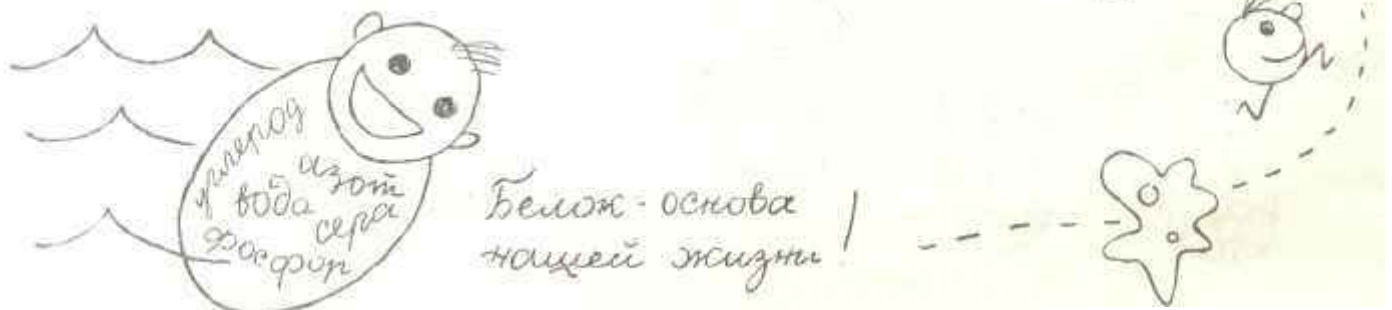 углерод
азот
вода
сера
фосфор
Белок - основа
нашей жизни!